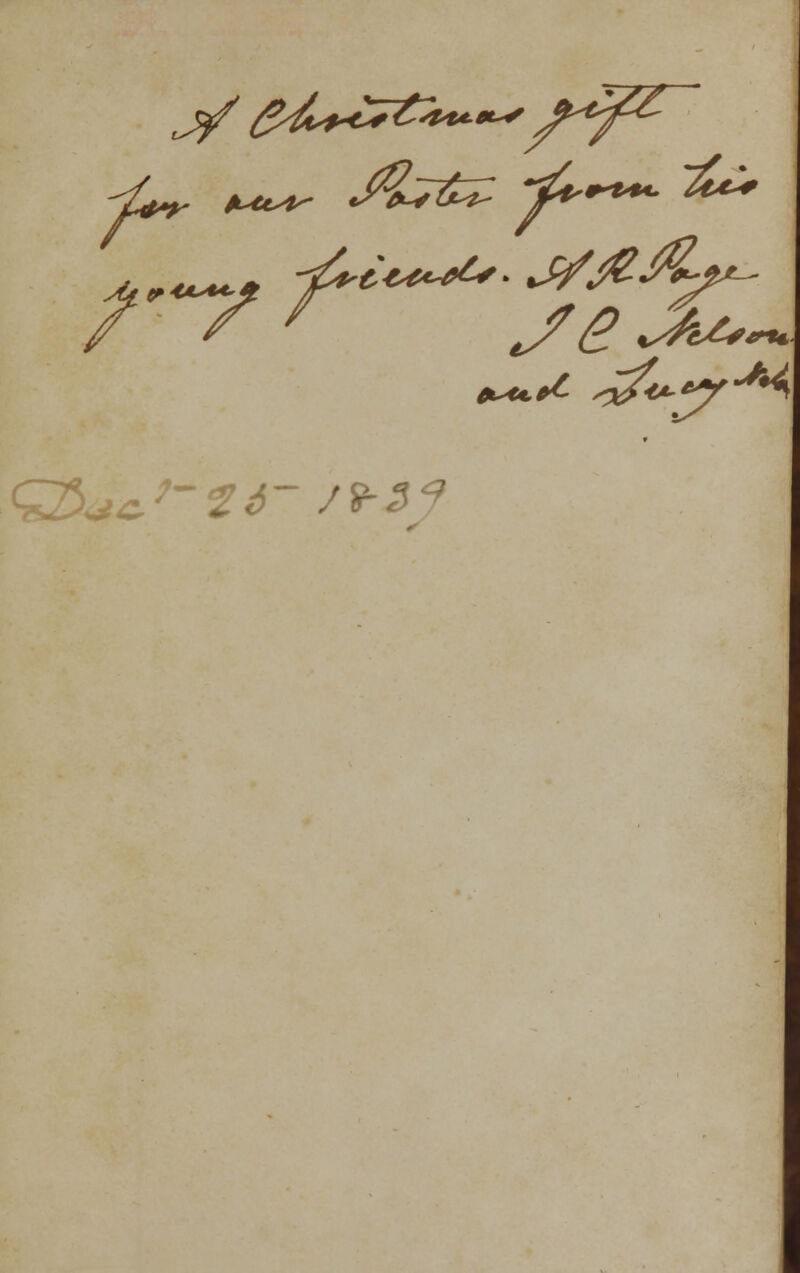 A Christmas gift
for our Paster from his
young friends. A R Page
J C Nelson
and Lucy Nels
Decr 25 1839